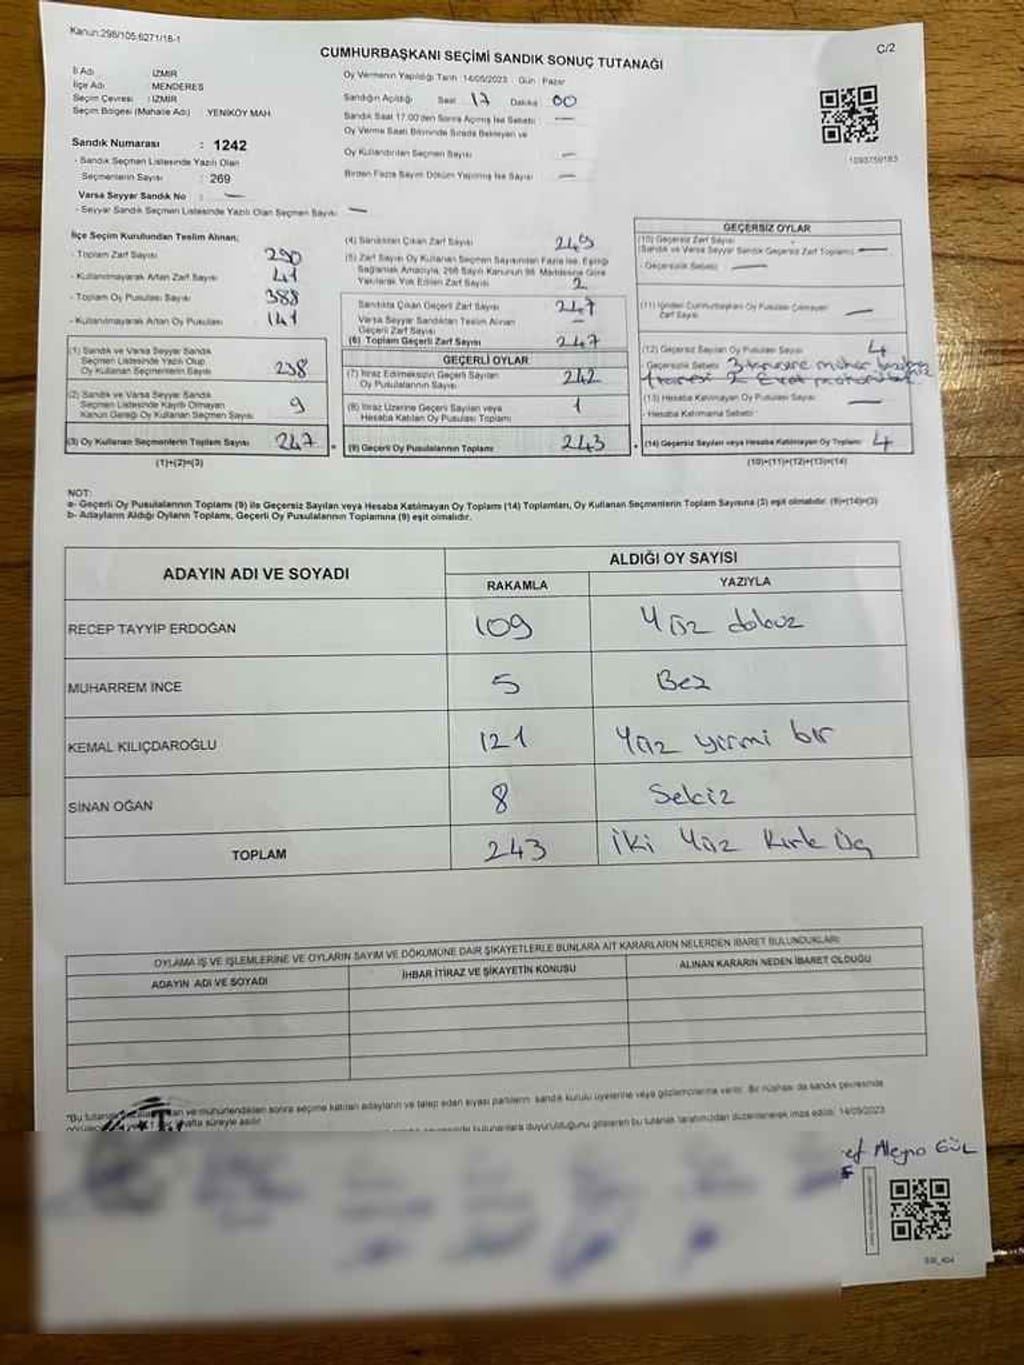 Kanun:298/105,6271/18-1
C/2
CUMHURBAŞKANI SEÇİMİ SANDIK SONUÇ TUTANAĞI
İl Adı : İZMİR
İlçe Adı : MENDERES
Seçim Çevresi : İZMİR
Seçim Bölgesi (Mahalle Adı) : YENİKÖY MAH
Sandık Numarası : 1242
- Sandık Seçmen Listesinde Yazılı Olan
Seçmenlerin Sayısı : 269
Varsa Seyyar Sandık No : —
- Seyyar Sandık Seçmen Listesinde Yazılı Olan Seçmen Sayısı : —
Oy Vermenin Yapıldığı Tarih :14/05/2023 Gün : Pazar
Sandığın Açıldığı Saat 17 Dakika 00
Sandık Saat 17:00'den Sonra Açılmış İse Sebebi : —
Oy Verme Saati Bitiminde Sırada Bekleyen ve
Oy Kullandırılan Seçmen Sayısı —
Birden Fazla Sayım Döküm Yapılmış İse Sayısı —
1093759183
İlçe Seçim Kurulundan Teslim Alınan;
- Toplam Zarf Sayısı : 290
- Kullanılmayarak Artan Zarf Sayısı : 41
- Toplam Oy Pusulası Sayısı : 388
- Kullanılmayarak Artan Oy Pusulası : 141
(1) Sandık ve Varsa Seyyar Sandık
Seçmen Listesinde Yazılı Olup
Oy Kullanan Seçmenlerin Sayısı : 238
(2) Sandık ve Varsa Seyyar Sandık
Seçmen Listesinde Kayıtlı Olmayan
Kanun Gereği Oy Kullanan Seçmen Sayısı : 9
(3) Oy Kullanan Seçmenlerin Toplam Sayısı : 247
(1)+(2)=(3)
(4) Sandıktan Çıkan Zarf Sayısı : 249
(5) Zarf Sayısı Oy Kullanan Seçmen Sayısından Fazla İse, Eşitliği
Sağlamak Amacıyla, 298 Sayılı Kanunun 98. Maddesine Göre
Yakılarak Yok Edilen Zarf Sayısı : 2
Sandıkta Çıkan Geçerli Zarf Sayısı : 247
Varsa Seyyar Sandıktan Teslim Alınan
Geçerli Zarf Sayısı : —
(6) Toplam Geçerli Zarf Sayısı : 247
GEÇERLİ OYLAR
(7) İtiraz Edilmeksizin Geçerli Sayılan
Oy Pusulalarının Sayısı : 242
(8) İtiraz Üzerine Geçerli Sayılan veya
Hesaba Katılan Oy Pusulası Toplamı : 1
(9) Geçerli Oy Pusulalarının Toplamı : 243
GEÇERSİZ OYLAR
(10) Geçersiz Zarf Sayısı
(Sandık ve Varsa Seyyar Sandık Geçersiz Zarf Toplamı) : —
- Geçersizlik Sebebi : —
(11) İçinden Cumhurbaşkanı Oy Pusulası Çıkmayan
Zarf Sayısı : —
(12) Geçersiz Sayılan Oy Pusulası Sayısı : 4
Geçersizlik Sebebi :
(13) Hesaba Katılmayan Oy Pusulası Sayısı : —
- Hesaba Katılmama Sebebi :
(14) Geçersiz Sayılan veya Hesaba Katılmayan Oy Toplamı : 4
(10)+(11)+(12)+(13)=(14)
NOT:
a- Geçerli Oy Pusulalarının Toplamı (9) ile Geçersiz Sayılan veya Hesaba Katılmayan Oy Toplamı (14) Toplamları, Oy Kullanan Seçmenlerin Toplam Sayısına (3) eşit olmalıdır. (9)+(14)=(3)
b- Adayların Aldığı Oyların Toplamı, Geçerli Oy Pusulalarının Toplamına (9) eşit olmalıdır.
ADAYIN ADI VE SOYADI ALDIĞI OY SAYISI
RAKAMLA YAZIYLA
RECEP TAYYİP ERDOĞAN 109 Yüz dokuz
MUHARREM İNCE 5 Beş
KEMAL KILIÇDAROĞLU 121 Yüz yirmi bir
SİNAN OĞAN 8 Sekiz
TOPLAM 243 İki Yüz Kırk Üç
OYLAMA İŞ VE İŞLEMLERİNE VE OYLARIN SAYIM VE DÖKÜMÜNE DAİR ŞİKAYETLERLE BUNLARA AİT KARARLARIN NELERDEN İBARET BULUNDUKLARI
ADAYIN ADI VE SOYADI İHBAR İTİRAZ VE ŞİKAYETİN KONUSU ALINAN KARARIN NEDEN İBARET OLDUĞU
ve mühürlendikten sonra seçime katılan adayların ve talep eden siyasi partilerin sandık kurulu üyelerine veya gözlemcilerine verilir. Bir nüshası da sandık çevresinde
hafta süreyle asılır.
bulunanlara duyurulduğunu gösteren bu tutanak tarafımızdan düzenlenerek imza edildi. 14/05/2023
GÜL